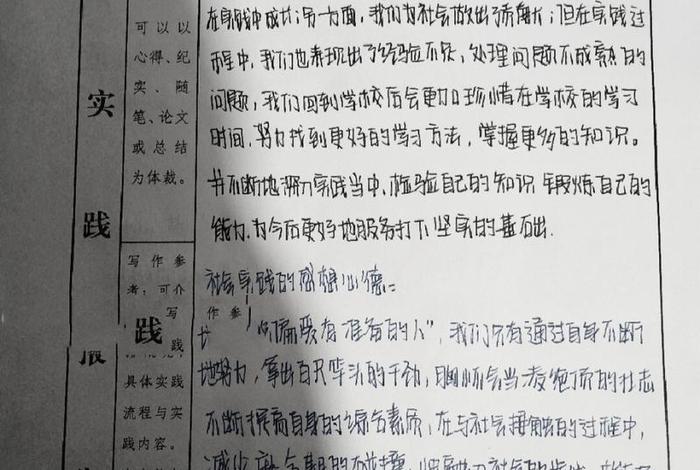 实
践
报
可以以
心得、纪
实、随
笔、论文
或总结
为体裁。
写作参
考：可介
写
作参
践
践
具体实践
流程与实
践内容。
在实践中成长；另一方面，我们为社会做出了贡献；但在实践过
程中，我们也表现出了经验不足，处理问题不成熟的
问题，我们回到学校后会更加珍惜在学校的学习
时间，努力找到更好的学习方法，掌握更多的知识。
并不断地深入实践当中，检验自己的知识 锻炼自己的
能力，为今后更好地服务打下坚实的基础出.
社会实践的感想心德：
"偏爱有准备的人"，我们只有通过自身不断
地努力，拿出百尺竿头的干劲，胸怀会当凌绝顶的壮志
不断提高自身的综合素质，在与社会接触的过程中，
减少